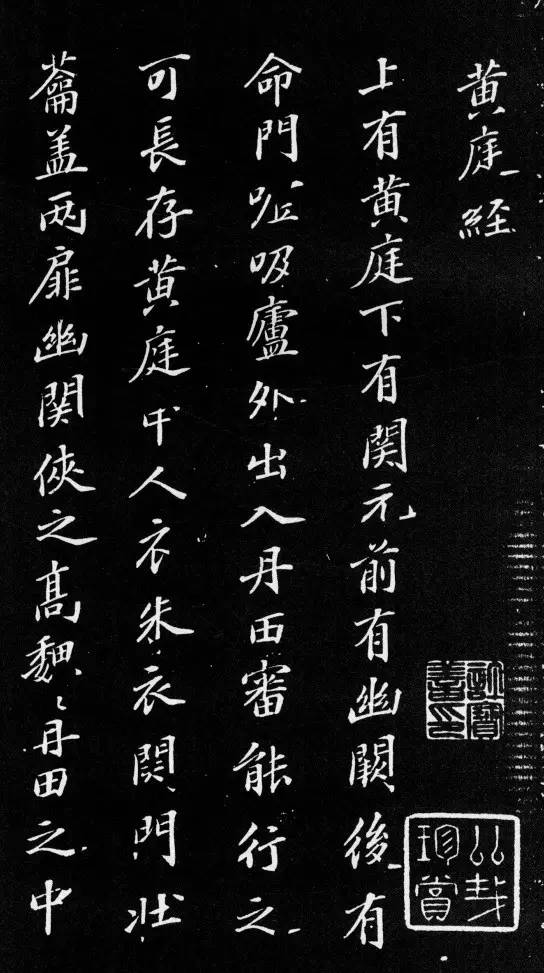 黄庭経
上有黄庭下有関元前有幽闕後有
命門嘘吸廬外出入丹田審能行之
可長存黄庭中人衣朱衣関門壮
蘥盖两扉幽関俠之髙巍〻丹田之中
珍賞